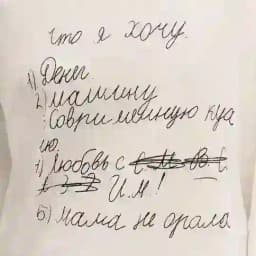 что я хочу.
1) Денег.
2) машину
Соври менную Куа
ю.
4) любовь с
И.М!
5) мама не орала